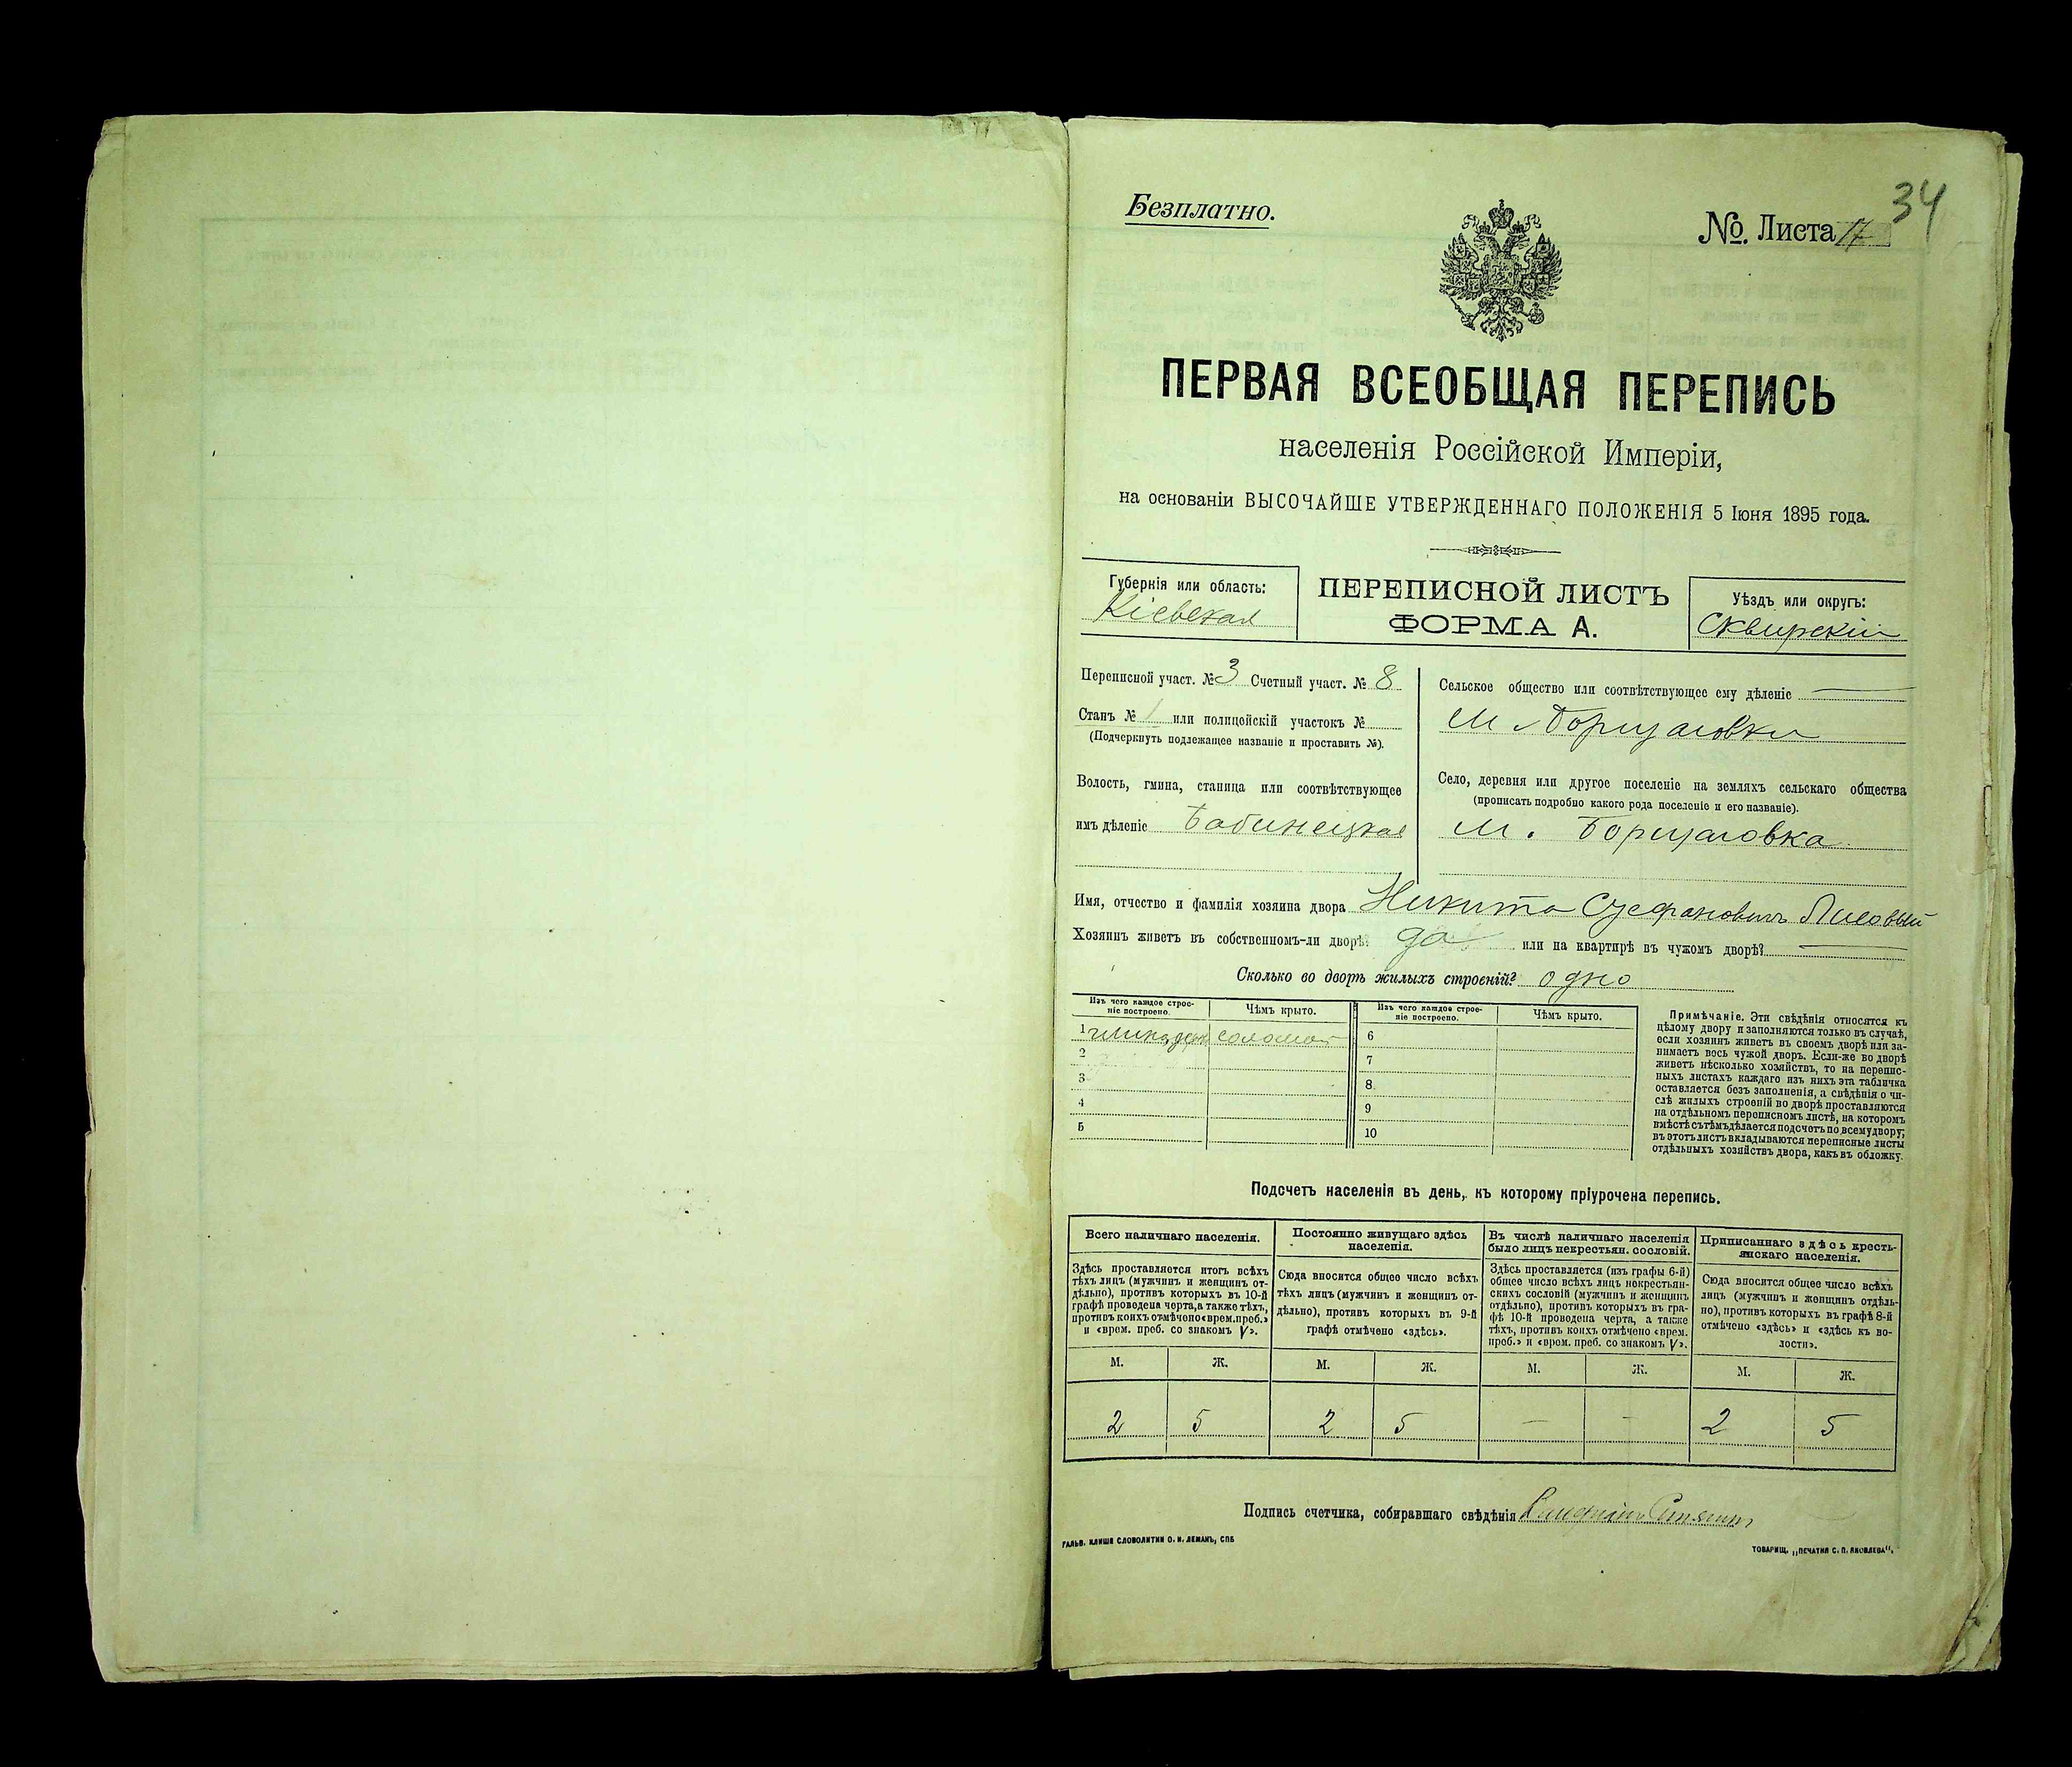 34
Безплатно.
№. Листа 17
ПЕРВАЯ ВСЕОБЩАЯ ПЕРЕПИСЬ
населенія Россійской Имперіи,
на основаніи ВЫСОЧАЙШЕ УТВЕРЖДЕННАГО ПОЛОЖЕНІЯ 5 Іюня 1895 года.
Губернія или область:
Кіевская
ПЕРЕПИСНОЙ ЛИСТЪ
ФОРМА А.
Уѣздъ или округъ:
Сквирскій
Переписной участ. № 3 Счетный участ. № 8
Станъ № 1 или полицейскій участокъ №
(Подчеркнуть подлежащее названіе и проставить №).
Волость, гмина, станица или соотвѣтствующее
имъ дѣленіе Бабинецкая
Сельское общество или соотвѣтствующее ему дѣленіе —
м Борщаговки
Село, деревня или другое поселеніе на земляхъ сельскаго общества
(прописать подробно какого рода поселеніе и его названіе).
м. Борщаговка
Имя, отчество и фамилія хозяина двора Никита Стефановичъ Лисовый
Хозяинъ живетъ въ собственномъ-ли дворѣ? да или на квартирѣ въ чужомъ дворѣ? —
Сколько во дворѣ жилыхъ строеній? одно
Изъ чего каждое строе-
ніе построено.
Чѣмъ крыто.
Изъ чего каждое строе-
ніе построено.
Чѣмъ крыто.
1 соломой 6
2 7
3 8
4 9
5 10
Примѣчаніе. Эти свѣдѣнія относятся къ
цѣлому двору и заполняются только въ случаѣ,
если хозяинъ живетъ въ своемъ дворѣ или за-
нимаетъ весь чужой дворъ. Если-же во дворѣ
живетъ нѣсколько хозяйствъ, то на перепис-
ныхъ листахъ каждаго изъ нихъ эта табличка
оставляется безъ заполненія, а свѣдѣнія о чи-
слѣ жилыхъ строеній во дворѣ проставляются
на отдѣльномъ переписномъ листѣ, на которомъ
вмѣстѣ съ тѣмъ дѣлается подсчетъ по всему двору;
въ этотъ листъ вкладываются переписные листы
отдѣльныхъ хозяйствъ двора, какъ въ обложку.
Подсчетъ населенія въ день, къ которому пріурочена перепись.
Всего наличнаго населенія.
Здѣсь проставляется итогъ всѣхъ
тѣхъ лицъ (мужчинъ и женщинъ от-
дѣльно), противъ которыхъ въ 10-й
графѣ проведена черта, а также тѣхъ,
противъ коихъ отмѣчено «врем. преб.»
и «врем. преб. со знакомъ V».
Постоянно живущаго здѣсь
населенія.
Сюда вносится общее число всѣхъ
тѣхъ лицъ (мужчинъ и женщинъ от-
дѣльно), противъ которыхъ въ 9-й
графѣ отмѣчено «здѣсь».
Въ числѣ наличнаго населенія
было лицъ некрестьян. сословій.
Здѣсь проставляется (изъ графы 6-й)
общее число всѣхъ лицъ некрестьян-
скихъ сословій (мужчинъ и женщинъ
отдѣльно), противъ которыхъ въ гра-
фѣ 10-й проведена черта, а также
тѣхъ, противъ коихъ отмѣчено «врем.
преб.» и «врем. преб. со знакомъ V».
Приписаннаго здѣсь кресть-
янскаго населенія.
Сюда вносится общее число всѣхъ
лицъ (мужчинъ и женщинъ отдѣль-
но), противъ которыхъ въ графѣ 8-й
отмѣчено «здѣсь» и «здѣсь къ во-
лости».
М. Ж. М. Ж. М. Ж. М. Ж.
2 5 2 5 — — 2 5
Подпись счетчика, собиравшаго свѣдѣнія
ГАЛЬВ. КЛИШЕ СЛОВОЛИТНИ О. И. ЛЕМАНЪ, СПБ
ТОВАРИЩ. „ПЕЧАТНЯ С. П. ЯКОВЛЕВА“.